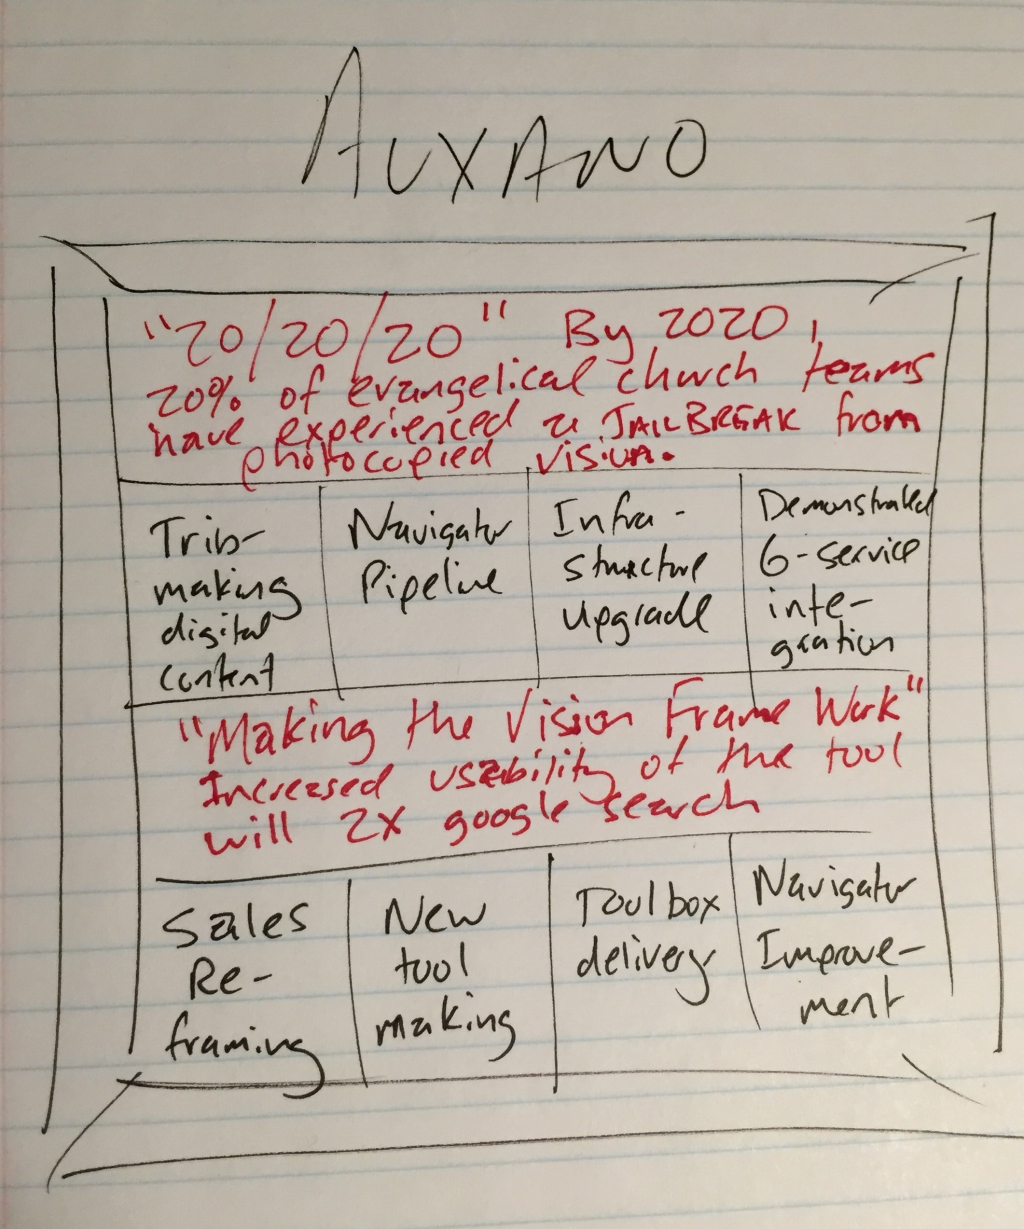 AUXANO
"20/20/20" By 2020,
20% of evangelical church teams
have experienced a JAILBREAK from
photocopied vision.
Trib-
making
digital
content
Navigator
Pipeline
Infra-
structure
upgrade
Demonstrated
6-service
inte-
gration
"Making the Vision Frame Work"
Increased usability of the tool
will 2x google search
Sales
Re-
framing
New
tool
making
Toolbox
delivery
Navigator
Improve-
ment